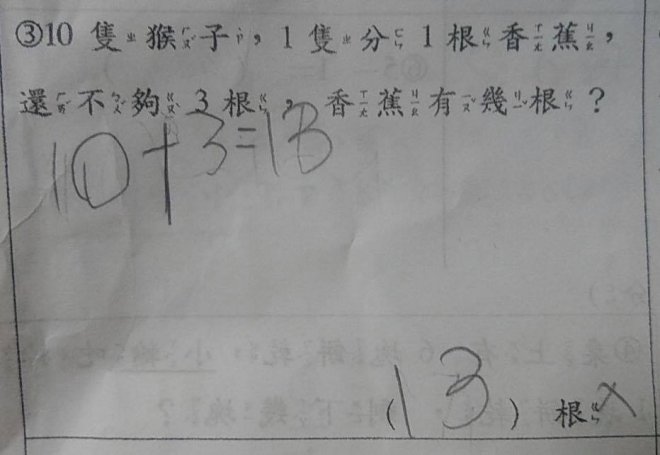 ③10 隻猴子，1 隻分 1 根香蕉，
還不夠 3 根，香蕉有幾根？
10+3=13
(13) 根